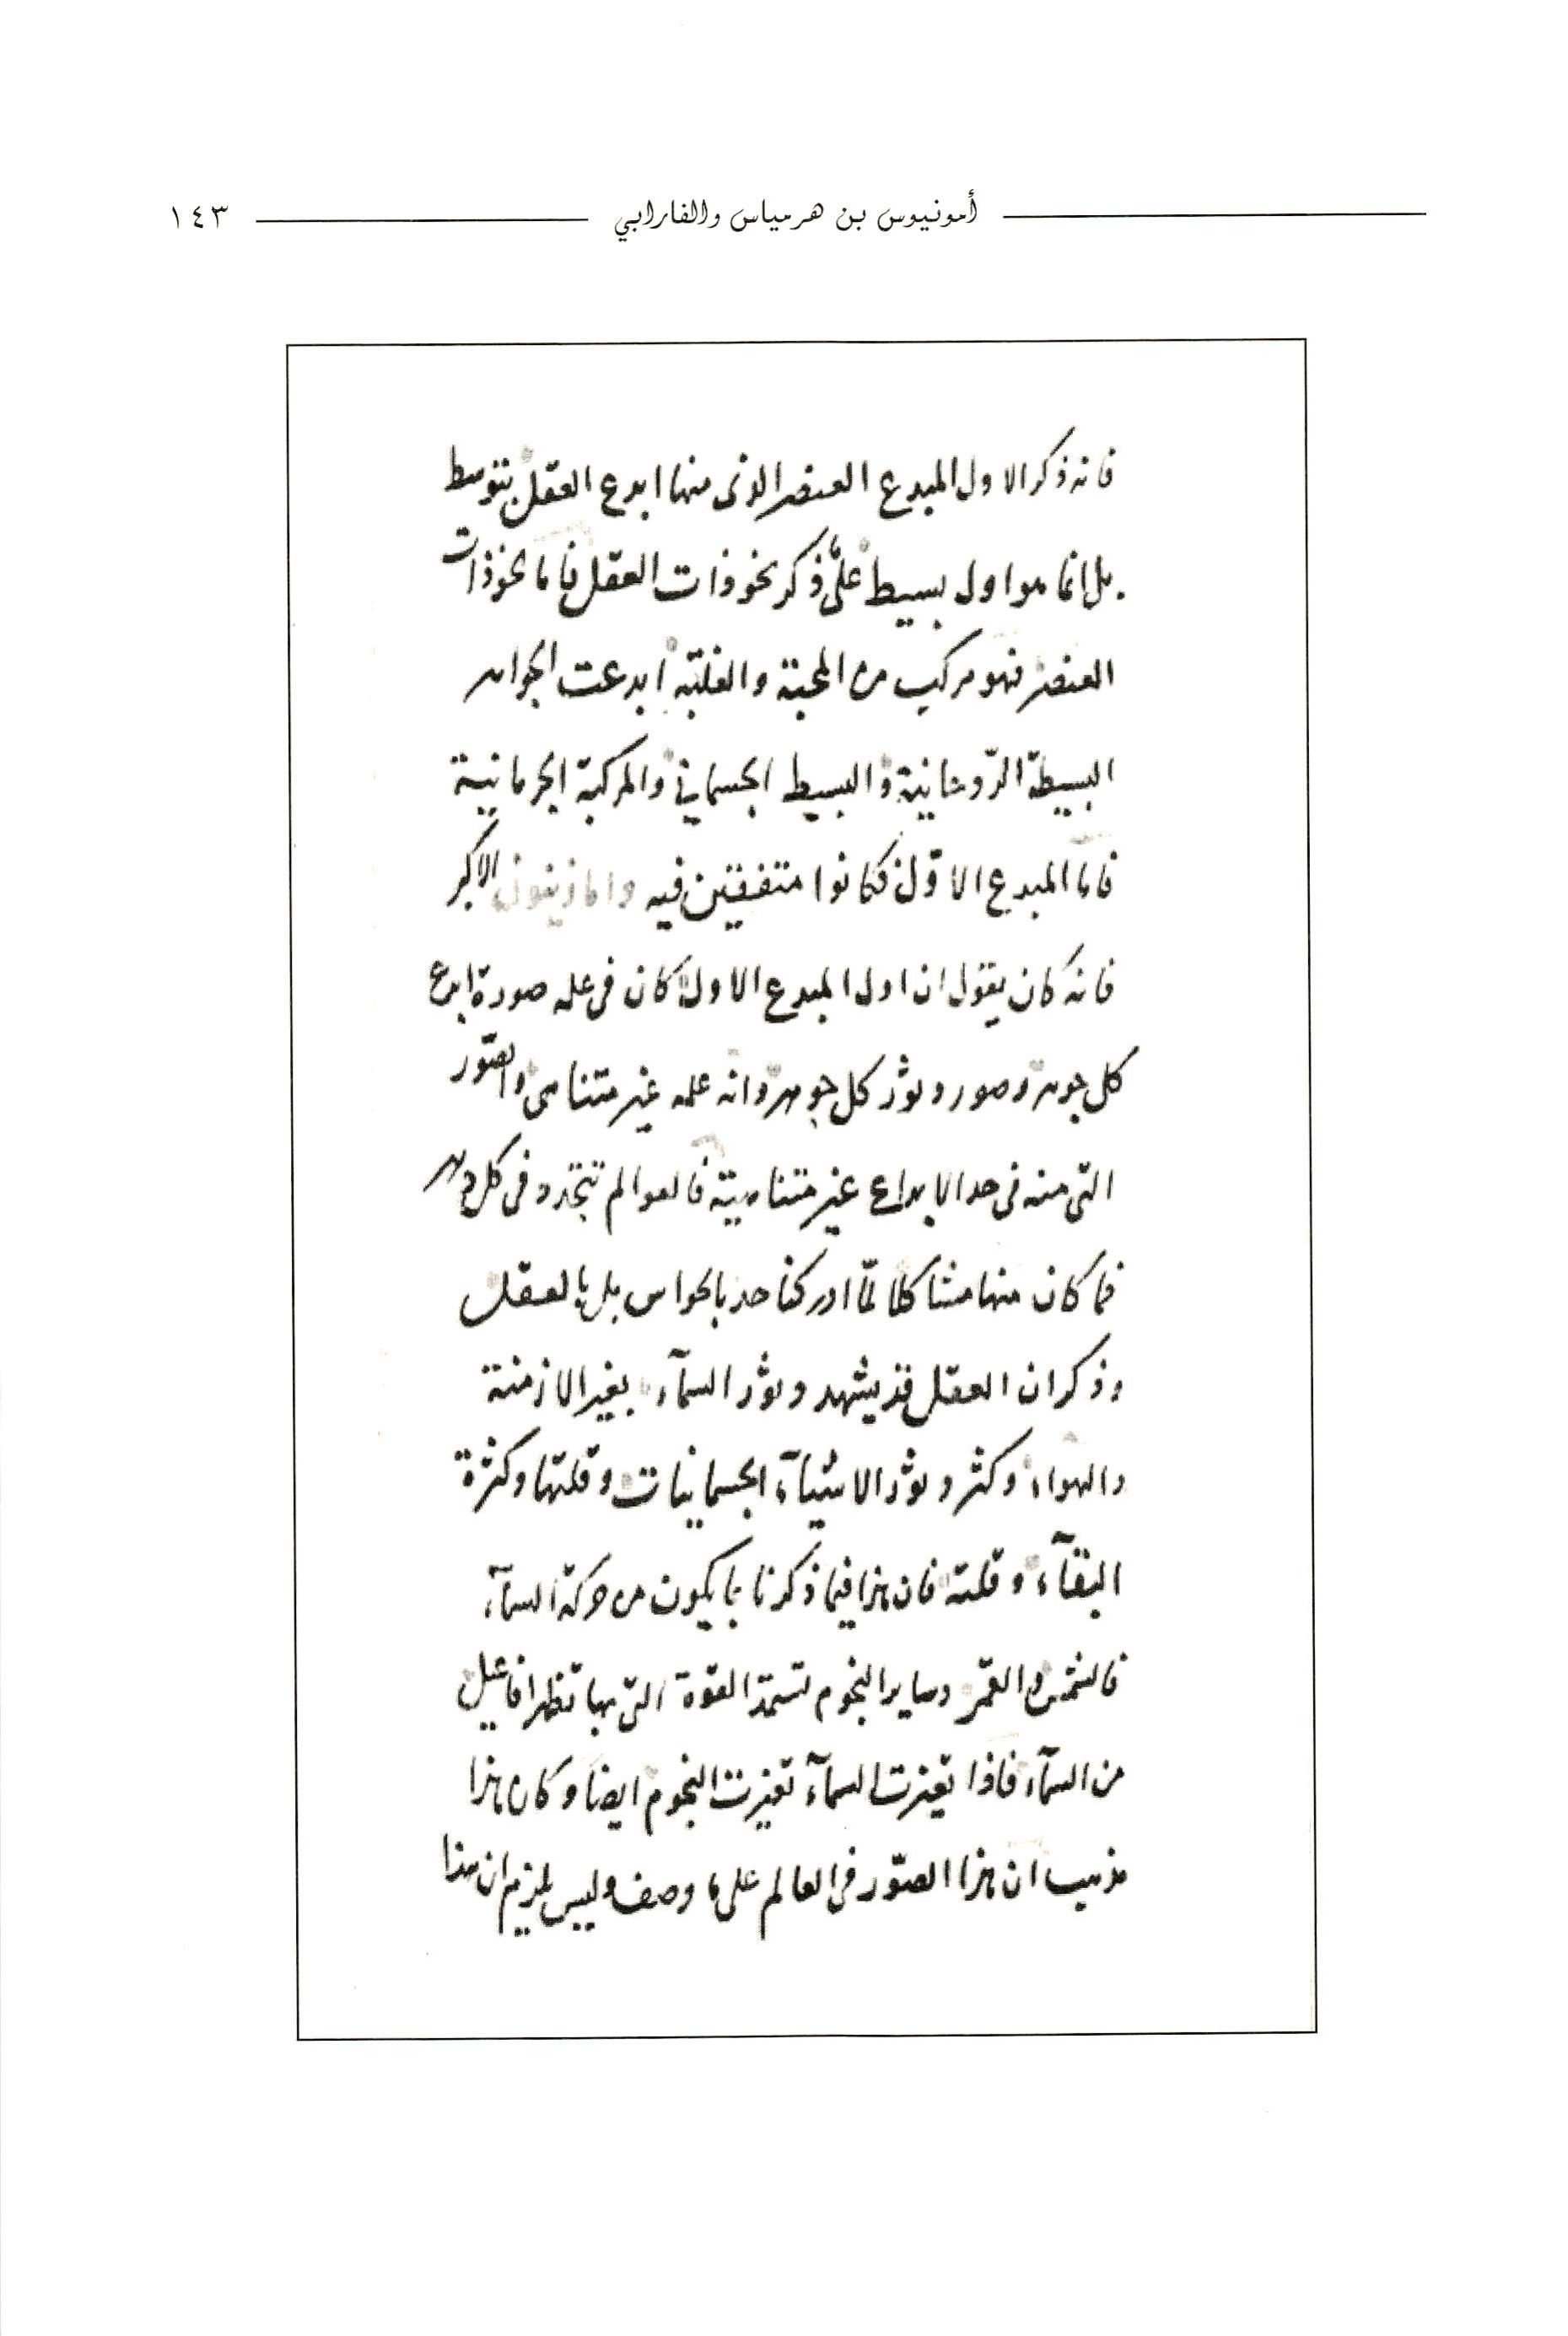 أمونيوس بن هرمياس والفارابي ١٤٣
فانه ذكر الاول المبدع العنصر الذى منها ابدع العقل بتوسط
بل انما هو اول بسيط على ذكر نحو ذات العقل فاما نحو ذات
العنصر فهو مركب من المحبة والغلبة ابدعت الجواهر
البسيطة الروحانية والبسيط الجسماني والمركبة الجرمانية
فاما المبدع الاوّل فكانوا متفقين فيه واما الاكبر
فانه كان يقول ان اول المبدع الاول كان فى علمه صورة ابدع
كل جوهر وصور ودثر كل جوهر وانه علمه غير متناهى والصّور
التى منه فى حد الابداع غير متناهية فالعوالم تتجدد فى كل دهر
فما كان منها مشاكلا لمّا ادركنا حد بالحواس بل بالعقل
وذكر ان العقل قد يشهد ودثر السمآء بغير الازمنة
والهواء وكثر ودثر الاشيآء الجسمانيات وقلتها وكثرة
البقآء وقلته فان هذا فيما ذكرنا بما يكون من حركة السمآء
فالشمس والقمر وساير النجوم تستمدّ القوة التى بها تظهر افاعيل
من السمآء فاذا تغيرت السمآء تغيرت النجوم ايضا وكان هذا
مذهب ان هذا الصوّر فى العالم على ما وصف وليس يلزم ان هذا